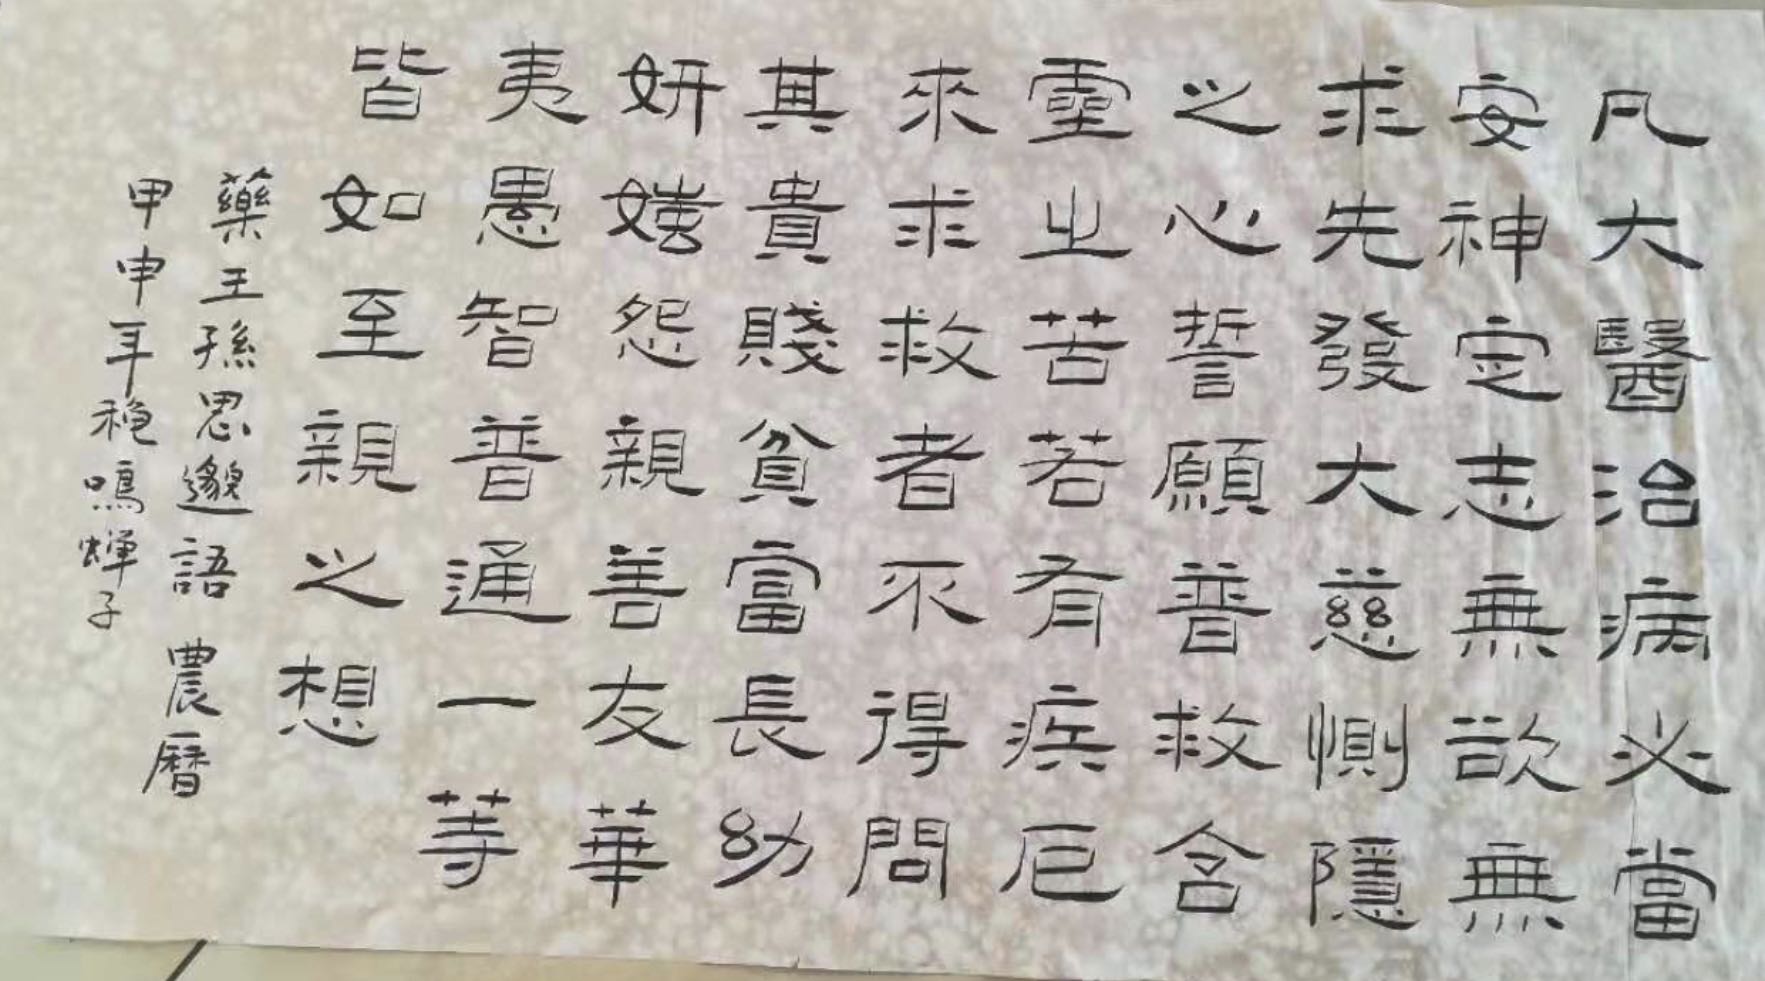 凡大醫治病必當
安神定志無欲無
求先發大慈惻隱
之心誓願普救含
靈之苦若有疾厄
來求救者不得問
其貴賤貧富長幼
妍媸怨親善友華
夷愚智普通一等
皆如至親之想
藥王孫思邈語 農曆
甲申年秋鳴蟬子